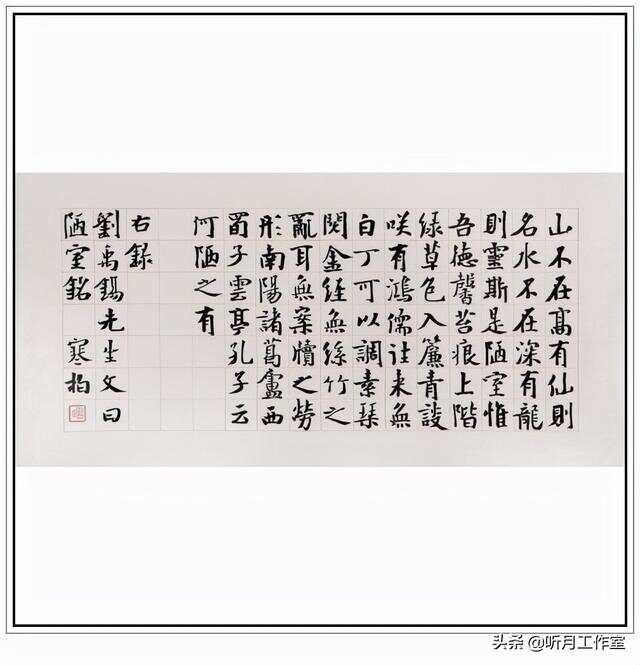 山不在高有仙則
名水不在深有龍
則靈斯是陋室惟
吾德馨苔痕上階
緑草色入簾青談
咲有鴻儒往来無
白丁可以調素琴
閲金經無絲竹之
亂耳無案牘之勞
形南陽諸葛盧西
蜀子雲亭孔子云
何陋之有
右録
劉禹錫先生文曰
陋室銘 寒
头条 @听月工作室